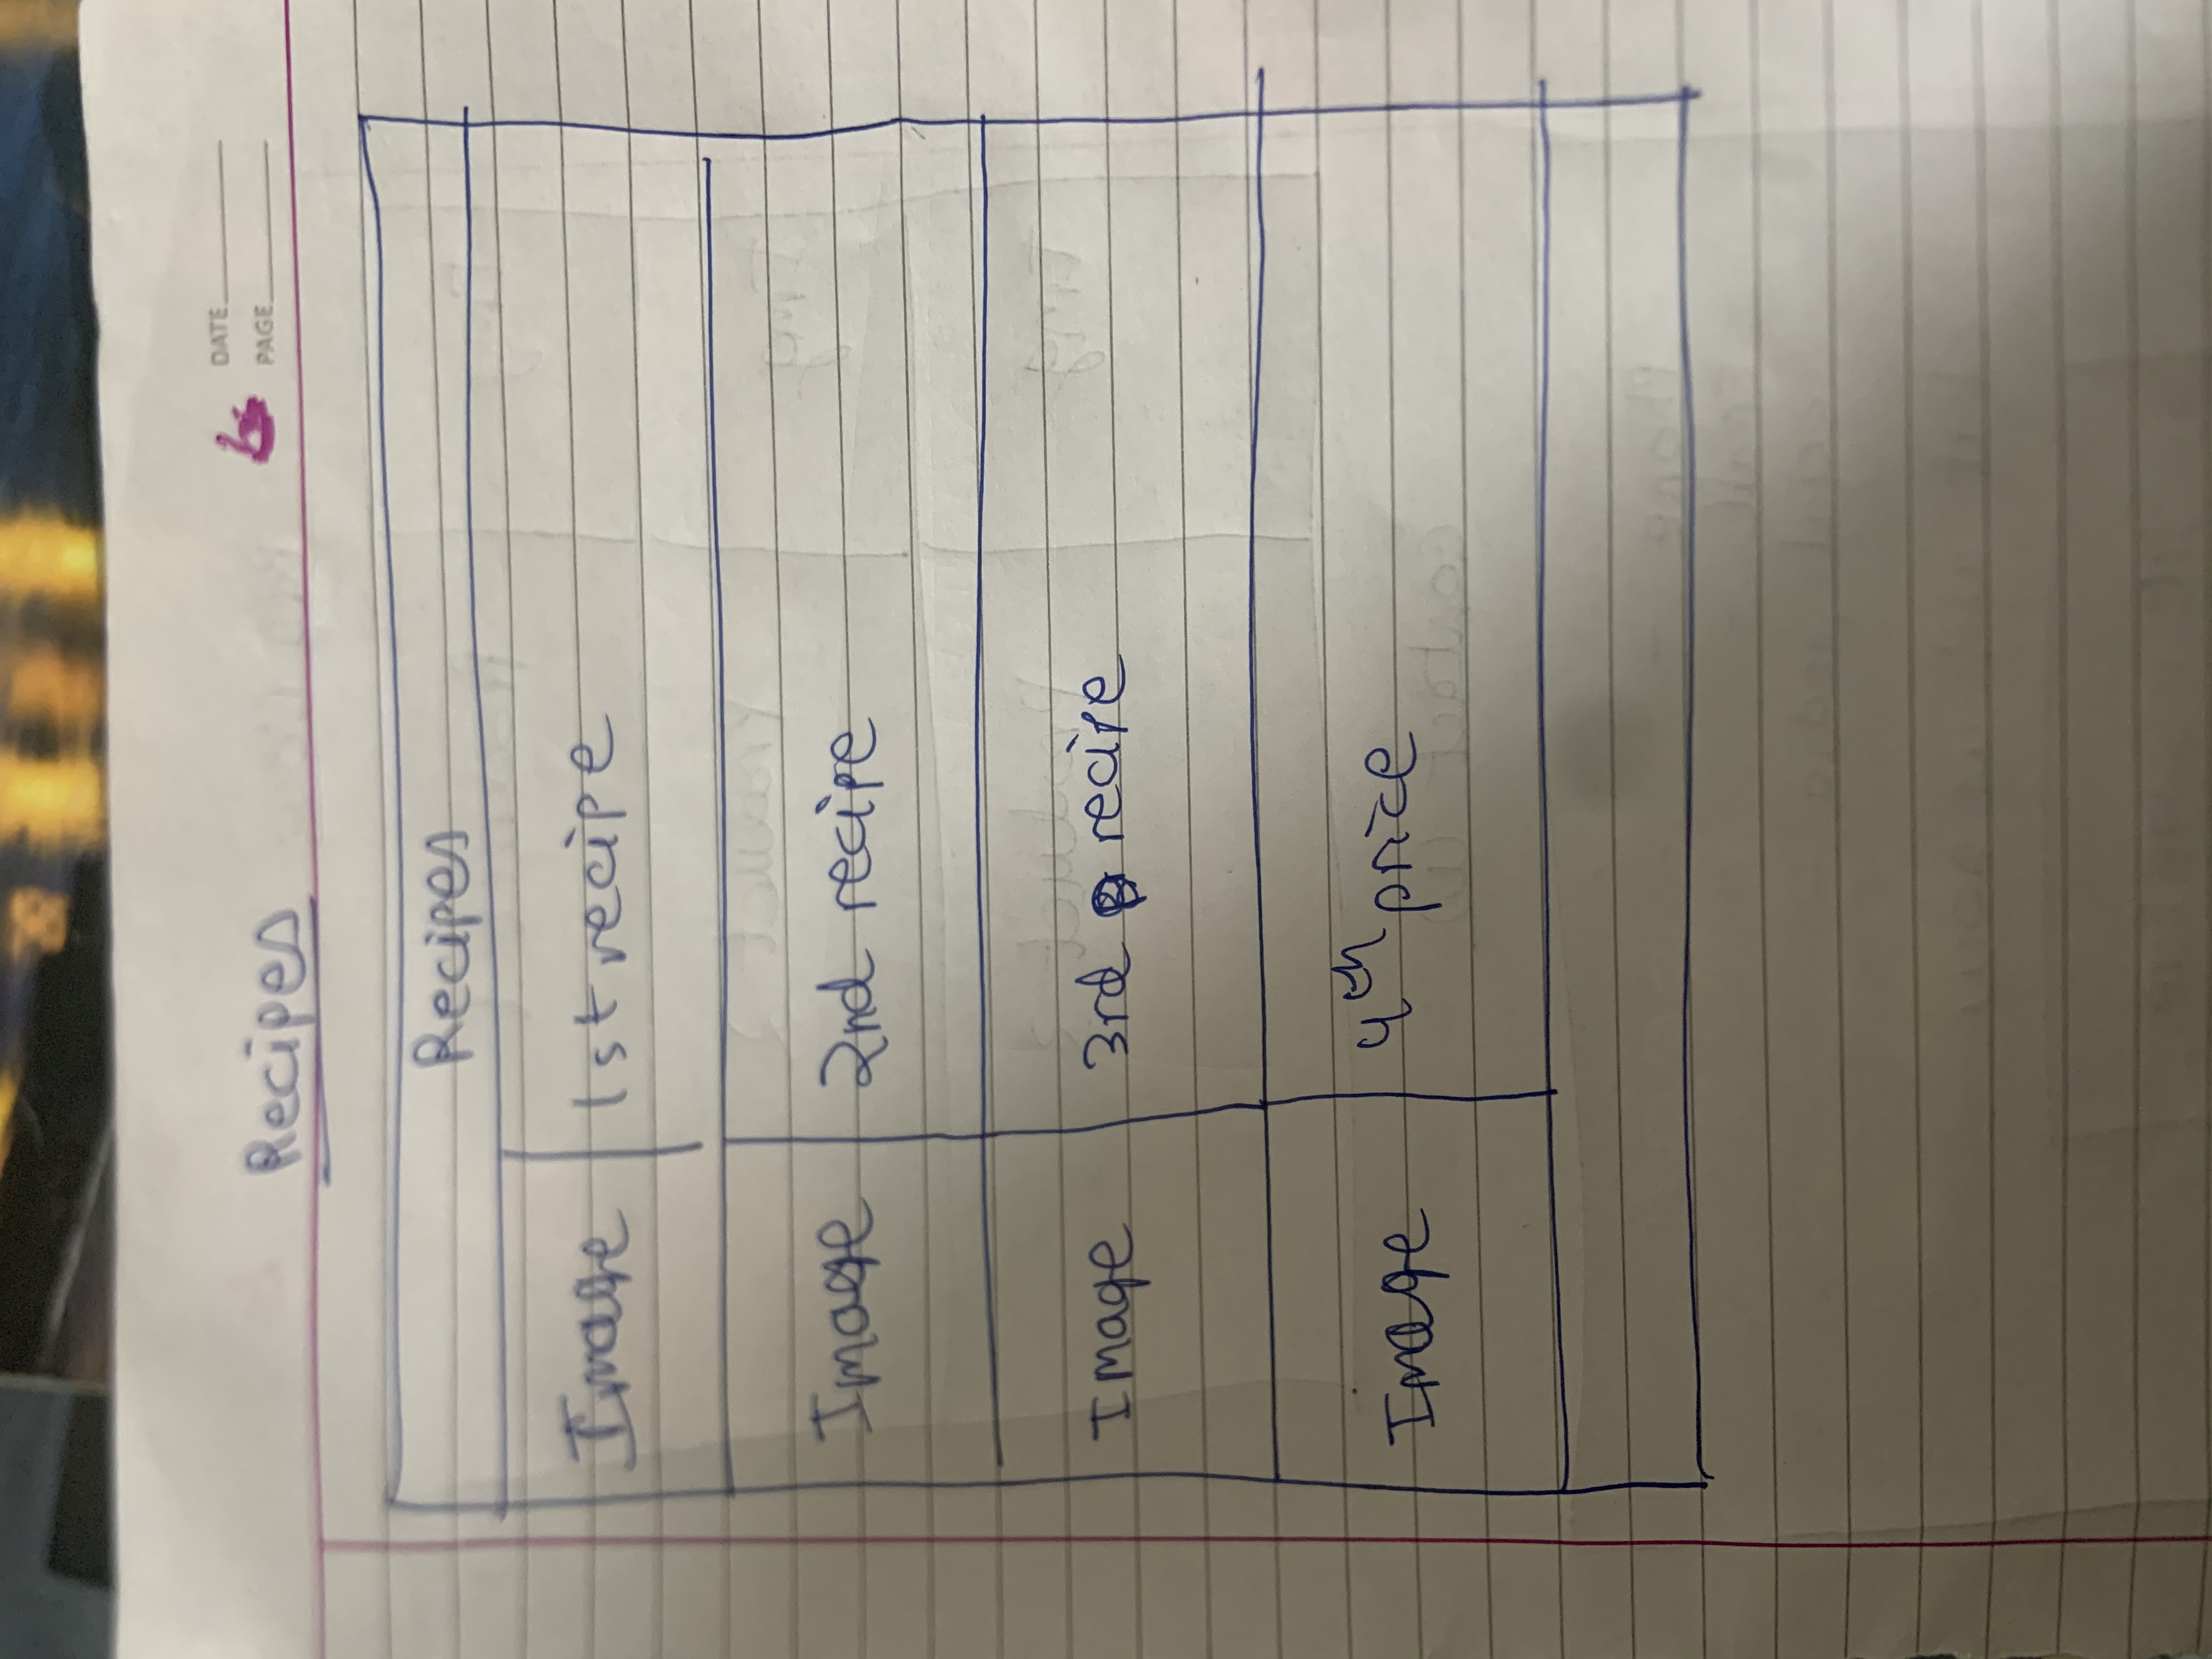 DATE
PAGE
Recipes
Recipes
Image 1st recipe
Image 2nd recipe
Image 3rd recipe
Image 4th prize